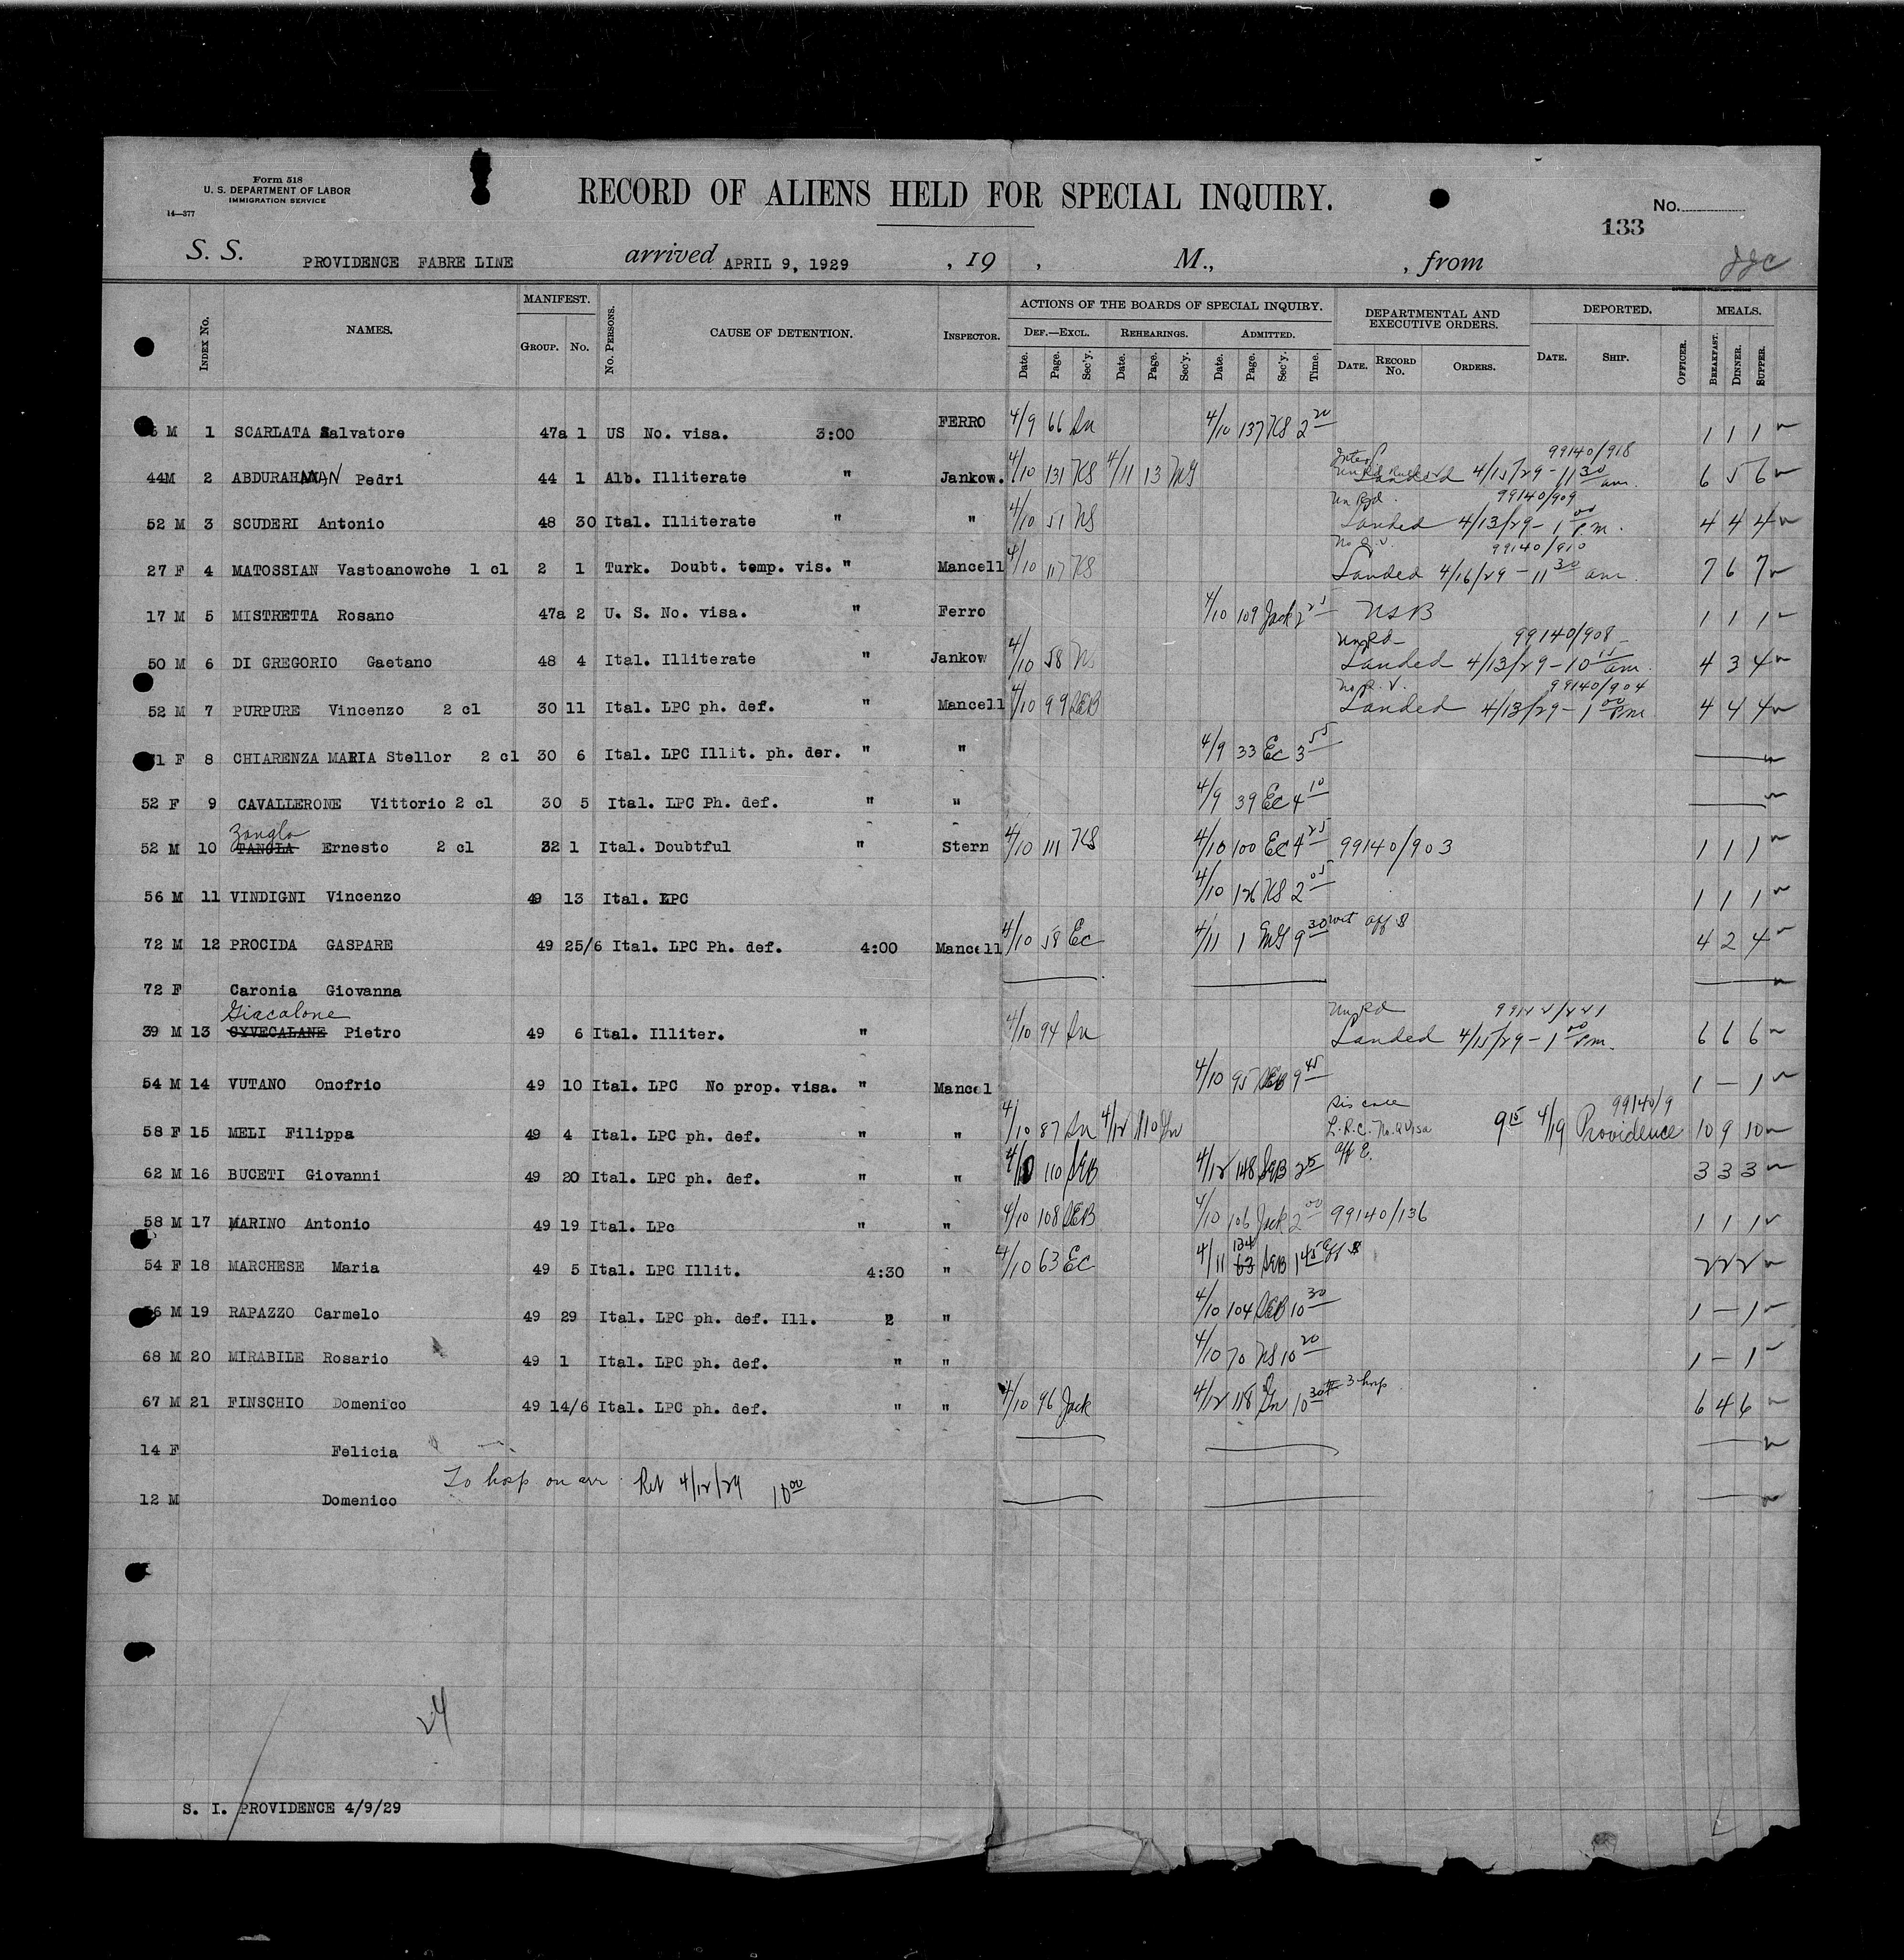 Form 518
U. S. DEPARTMENT OF LABOR
IMMIGRATION SERVICE
14—377
RECORD OF ALIENS HELD FOR SPECIAL INQUIRY.
No.
133
S. S. PROVIDENCE FABRE LINE arrived APRIL 9, 1929 , 19 , M., , from
INDEX No. NAMES. MANIFEST. GROUP. No. No. PERSONS. CAUSE OF DETENTION. INSPECTOR. ACTIONS OF THE BOARDS OF SPECIAL INQUIRY. DEF.—EXCL. Date. Page. Sec'y. REHEARINGS. Date. Page. Sec'y. ADMITTED. Date. Page. Sec'y. Time. DEPARTMENTAL AND EXECUTIVE ORDERS. DATE. RECORD No. ORDERS. DEPORTED. DATE. SHIP. OFFICER. MEALS. BREAKFAST. DINNER. SUPPER.
M 1 SCARLATA Salvatore 47a 1 US No. visa. 3:00 FERRO 4/9 66 4/10 137 KS 2 20 1 1 1
99140/918
44M 2 ABDURAHMAN Pedri 44 1 Alb. Illiterate " Jankow. 4/10 131 KS 4/11 13 MG Landed 4/15/29 - 11 30 am. 6 5 6
99140/909
52 M 3 SCUDERI Antonio 48 30 Ital. Illiterate " " 4/10 51 Landed 4/13/29 - 1 00 P.m. 4 4 4
99140/910
27 F 4 MATOSSIAN Vastoanowche 1 cl 2 1 Turk. Doubt. temp. vis. " Mancell 4/10 117 KS Landed 4/16/29 - 11 30 am. 7 6 7
17 M 5 MISTRETTA Rosano 47a 2 U. S. No. visa. " Ferro 4/10 109 Jack 2 25 1 1 1
99140/908
50 M 6 DI GREGORIO Gaetano 48 4 Ital. Illiterate " Jankow 4/10 58 Landed 4/13/29 - 10 15 am. 4 3 4
99140/904
52 M 7 PURPURE Vincenzo 2 cl 30 11 Ital. LPC ph. def. " Mancell 4/10 99 SEB Landed 4/13/29 - 1 00 Pm. 4 4 4
F 8 CHIARENZA MARIA Stellor 2 cl 30 6 Ital. LPC Illit. ph. der. " " 4/9 33 Ec 3 55
52 F 9 CAVALLERONE Vittorio 2 cl 30 5 Ital. LPC Ph. def. " " 4/9 39 Ec 4 10
Zangla
52 M 10 TANGIA Ernesto 2 cl 32 1 Ital. Doubtful " Stern 4/10 111 KS 4/10 100 Ec 4 25 99140/903 1 1 1
56 M 11 VINDIGNI Vincenzo 49 13 Ital. LPC 4/10 126 KS 2 05 1 1 1
72 M 12 PROCIDA GASPARE 49 25/6 Ital. LPC Ph. def. 4:00 Mancell 4/10 58 Ec 4/11 1 MG 9 30 wit aff $ 4 2 4
72 F Caronia Giovanna
Giacalone
39 M 13 CYVECALANE Pietro 49 6 Ital. Illiter. " 4/10 94 Landed 4/15/29 - 1 00 Pm. 6 6 6
54 M 14 VUTANO Onofrio 49 10 Ital. LPC No prop. visa. " Mancel 4/10 95 SEB 9 45 1 — 1
99140/9
58 F 15 MELI Filippa 49 4 Ital. LPC ph. def. " " 4/10 87 4/12 110 9 15 4/19 Providence 10 9 10
62 M 16 BUCETI Giovanni 49 20 Ital. LPC ph. def. " " 4/10 110 SEB 4/12 148 SEB 2 25 3 3 3
58 M 17 MARINO Antonio 49 19 Ital. LPc " " 4/10 108 SEB 4/10 106 Jack 2 00 99140/136 1 1 1
54 F 18 MARCHESE Maria 49 5 Ital. LPC Illit. 4:30 " 4/10 63 Ec 4/11 134 63 SEB 1 45 2 2 2
M 19 RAPAZZO Carmelo 49 29 Ital. LPC ph. def. Ill. " 4/10 104 SEB 10 30 1 — 1
68 M 20 MIRABILE Rosario 49 1 Ital. LPC ph. def. " " 4/10 70 10 20 1 — 1
67 M 21 FINSCHIO Domenico 49 14/6 Ital. LPC ph. def. " " 4/10 96 Jack 4/12 118 10 30 6 4 6
14 F Felicia
To hosp on arr. Ret 4/12/29 10 00
12 M Domenico
24
S. I. PROVIDENCE 4/9/29